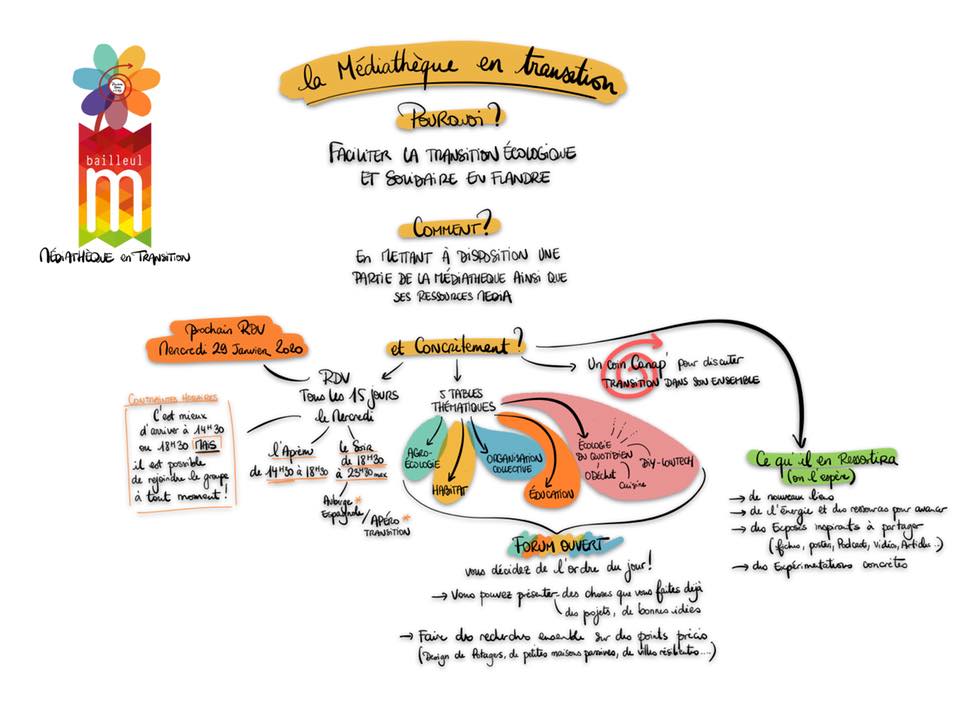 la Médiathèque en transition
bailleul
m
MÉDIATHÈQUE en TRANSITION
POURQUOI ?
FACILITER LA TRANSITION ÉCOLOGIQUE
ET SOLIDAIRE EN FLANDRE
COMMENT ?
EN METTANT À DISPOSITION UNE
PARTIE DE LA MÉDIATHEQUE AINSI QUE
SES RESSOURCES MEDIA
et CONCRÈTEMENT ?
prochain RDV
Mercredi 29 Janvier 2020
RDV
Tous les 15 jours
le Mercredi
CONTRAINTES HORAIRES
C'est mieux
d'arriver à 14H30
ou 18H30 MAIS
il est possible
de rejoindre le groupe
à tout moment !
l'Aprèm
de 14H30 à 18H30
le Soir
de 18H30
à 23H30 max
Auberge *
Espagnole
/ APÉRO *
TRANSITION
5 TABLES
THÉMATIQUES
AGRO-
ÉCOLOGIE
HABITAT
ORGANISATION
COLLECTIVE
ÉDUCATION
ÉCOLOGIE
DU QUOTIDIEN
0 Déchet
Cuisine
DIY-LOWTECH
Un coin Canap' pour discuter
TRANSITION DANS SON ENSEMBLE
FORUM OUVERT
vous décidez de l'ordre du jour !
→ Vous pouvez présenter - des choses que vous faites déjà
des projets, de bonnes idées
→ Faire des recherches ensemble sur des points précis
(Design de Potagers, de petites maisons passives, de villes résilientes....)
Ce qu'il en Ressortira
(on l'espère)
→ de nouveaux liens
→ de l'énergie et des ressources pour avancer
→ des Exposés inspirants à partager
(fiches, poster, Podcast, Vidéo, Articles...)
→ des Expérimentations concrètes